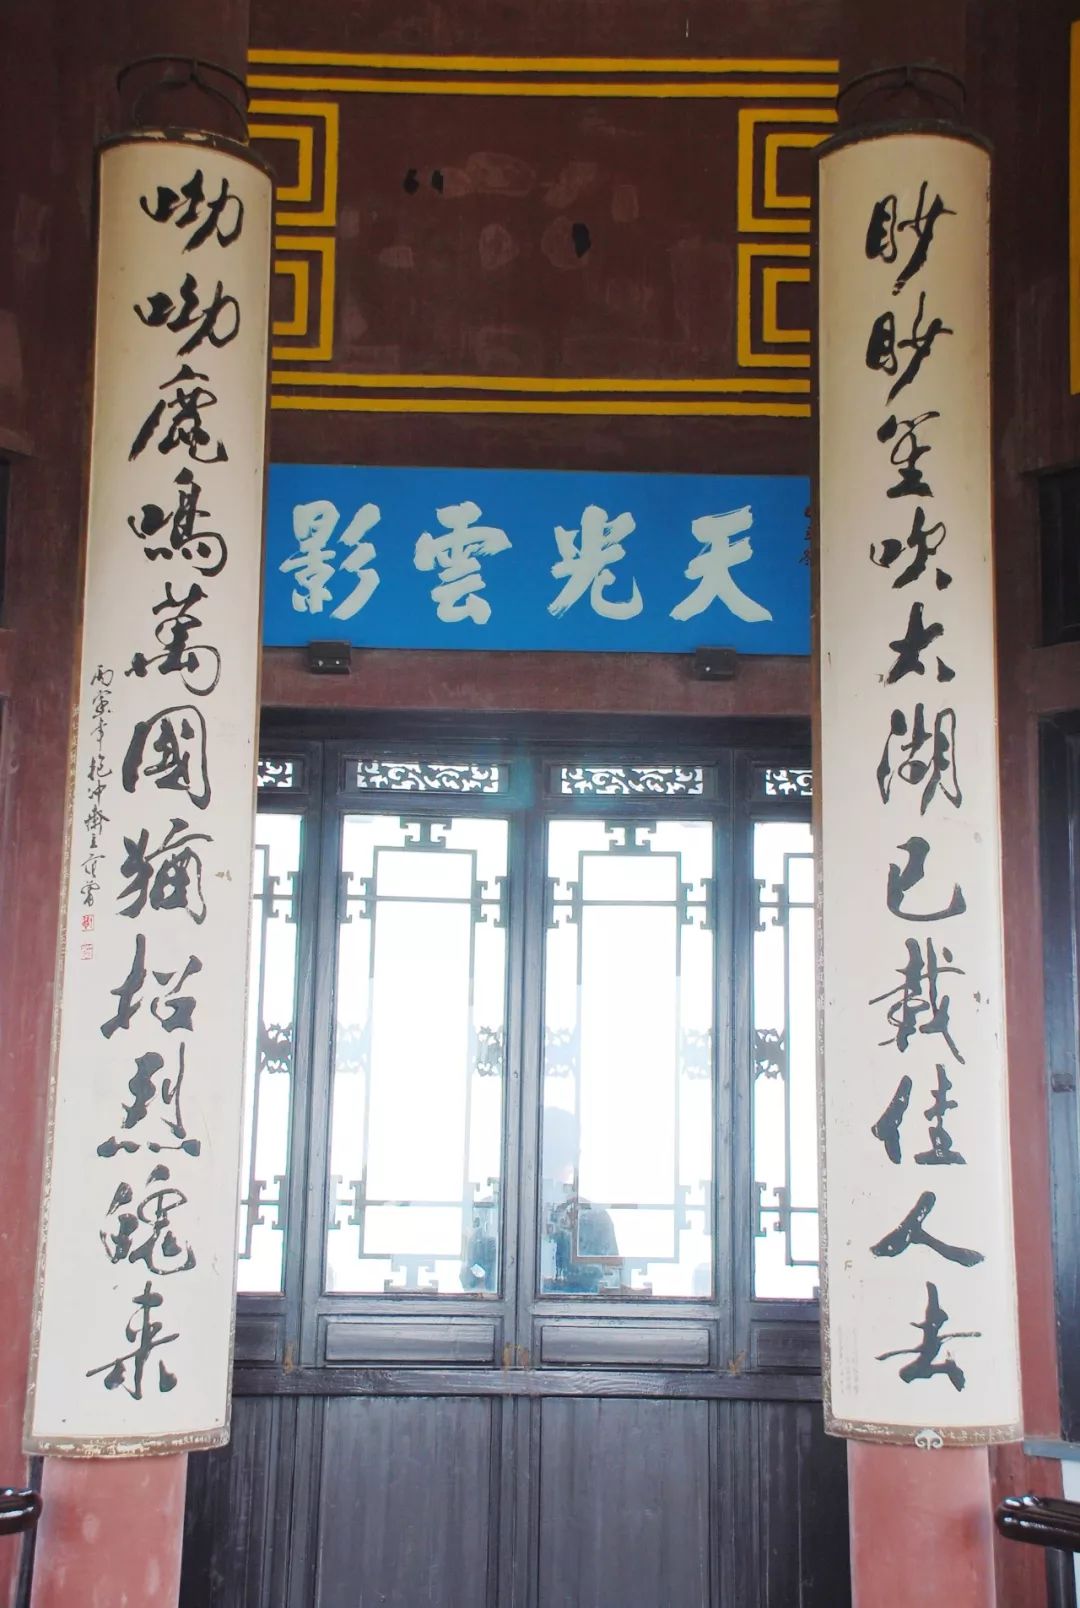 天光雲影
眇眇笙吹太湖已載佳人去
呦呦鹿鳴萬國猶招烈魄來
丙寅年抱沖齋主范曾